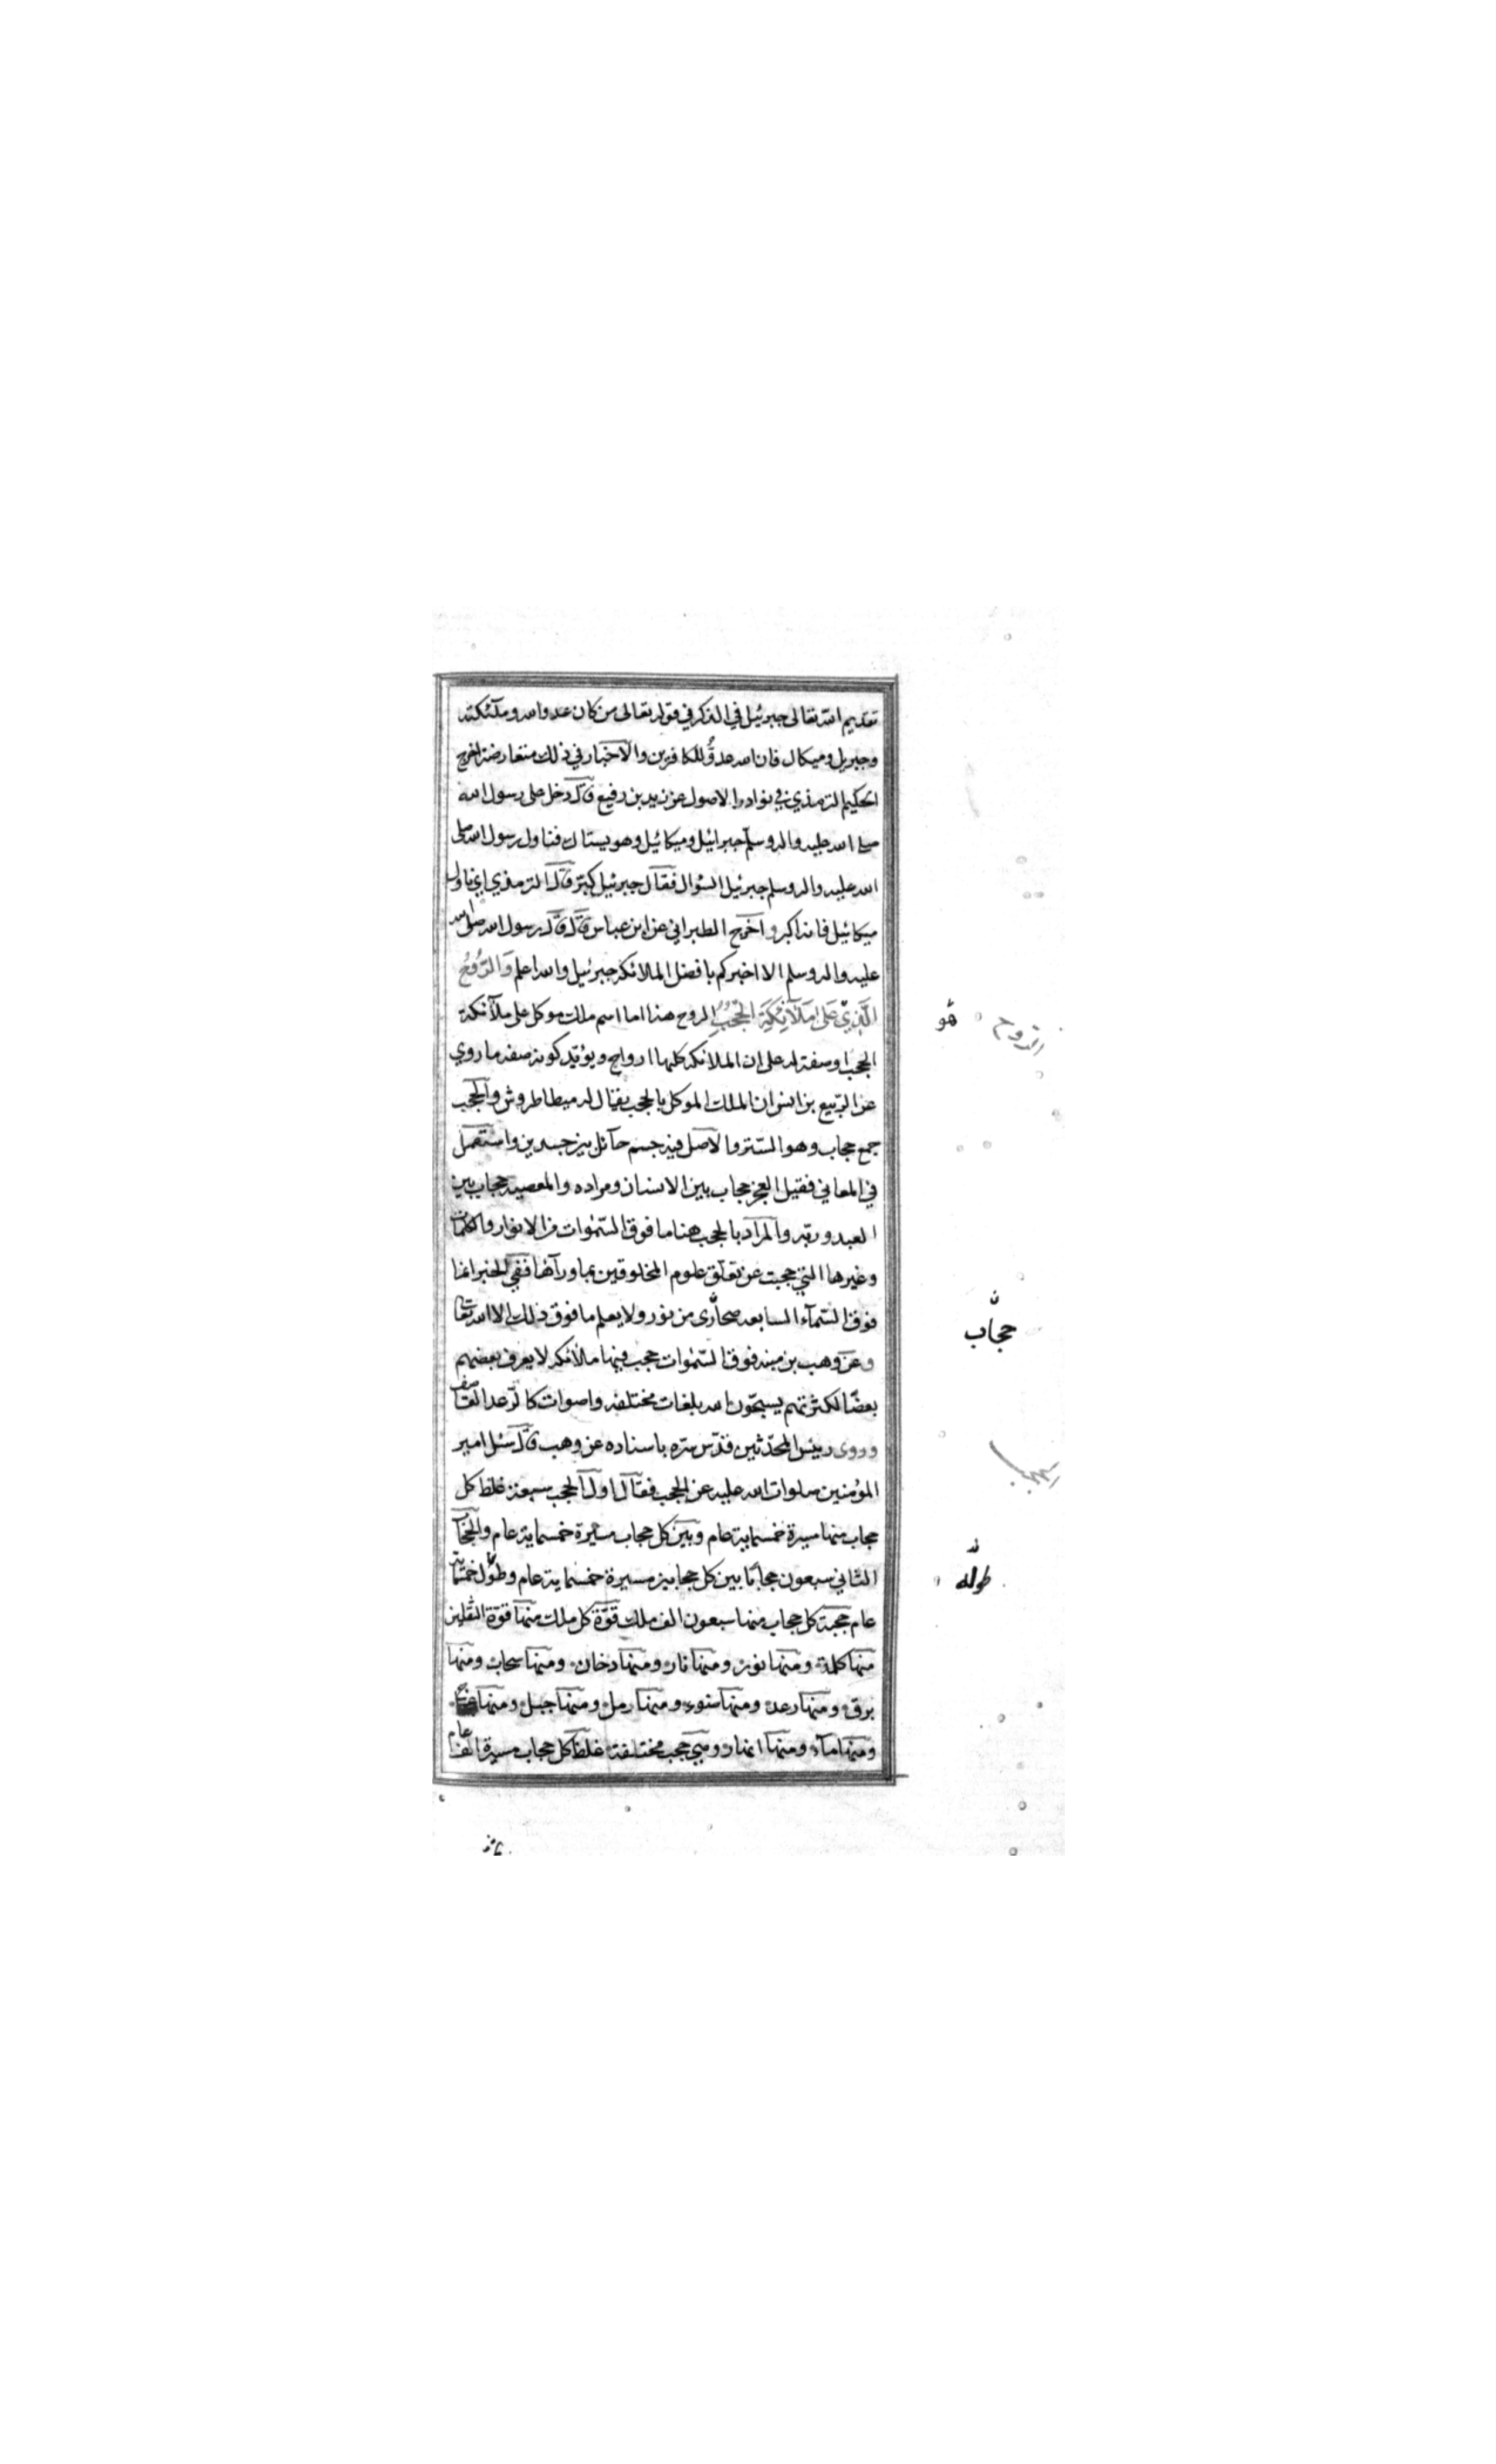 تقديم الله تعالى جبرئيل في الذكر في قوله تعالى من كان عدوا لله وملآئكته
وجبريل وميكال فان الله عدوٌّ للكافرين والاخبار في ذلك متعارضة اخرج
الحكيم الترمذي في نوادر الاصول عن زيد بن رفيع قال دخل على رسول الله
صلى الله عليه واله وسلم جبرائيل وميكائيل وهو يستاك فناول رسول الله صلى
الله عليه واله وسلم جبرئيل السؤال فقال جبرئيل كبّر قال الترمذي اي ناول
ميكائيل فانه اكبر واخرج الطبراني عن ابن عباس قال قال رسول الله صلى الله
عليه واله وسلم الا اخبركم بافضل الملائكه جبرئيل والله اعلم وَالرُّوحُ
الَّذِي عَلى مَلآئِكَةِ الْحُجُبِ الروح هنا اما اسم ملك موكل على ملآئكة
الحجب او صفة له على ان الملائكه كلها ارواح ويؤيّد كونه صفه ما روي
عن الرّبيع بن انس ان الملك الموكل بالحجب يقال له ميطاطروش والحجب
جمع حجاب وهو السّتر والاصل فيه جسم حآئل بين جسدين واستعمل
في المعاني فقيل العجز حجاب بين الانسان ومراده والمعصيه حجاب بين
العبد وربّه والمراد بالحجب هنا ما فوق السّمٰوات من الانوار والظلمات
وغيرها التي حجبت عن تعلّق علوم المخلوقين بما ورآءها ففي الخبر انما
فوق السّمآء السابعه صحارى من نور ولا يعلم ما فوق ذلك الا الله تعالى
وعن وهب بن منبه فوق السّمٰوات حجب فيها ملائكه لا يعرف بعضهم
بعضًا لكثرتهم يسبّحون الله بلغات مختلفه واصوات كالرّعد القاصف
وروى رييس المحدّثين قدّس سرّه باسناده عن وهب قال سئل امير
المؤمنين صلوات الله عليه عن الحجب فقال اول الحجب سبعة غلظ كل
حجاب منها مسيرة خمسماية عام وبين كل حجاب مسيرة خمسماية عام والحجاب
الثاني سبعون حجابًا بين كل حجابين مسيرة خمسماية عام وطول خمسماية
عام حجبة كل حجاب منها سبعون الف ملك قوّة كل ملك منها قوّة الثقلين
منها ظلمة ومنها نور ومنها نار ومنها دخان ومنها سحاب ومنها
برق ومنها رعد ومنها ضوء ومنها رمل ومنها جبل ومنها
ومنها مآء ومنها انهار وهي حجب مختلفة غلظ كل حجاب مسيرة الف عام
هو
الروح
حجاب
الحجب
طوله